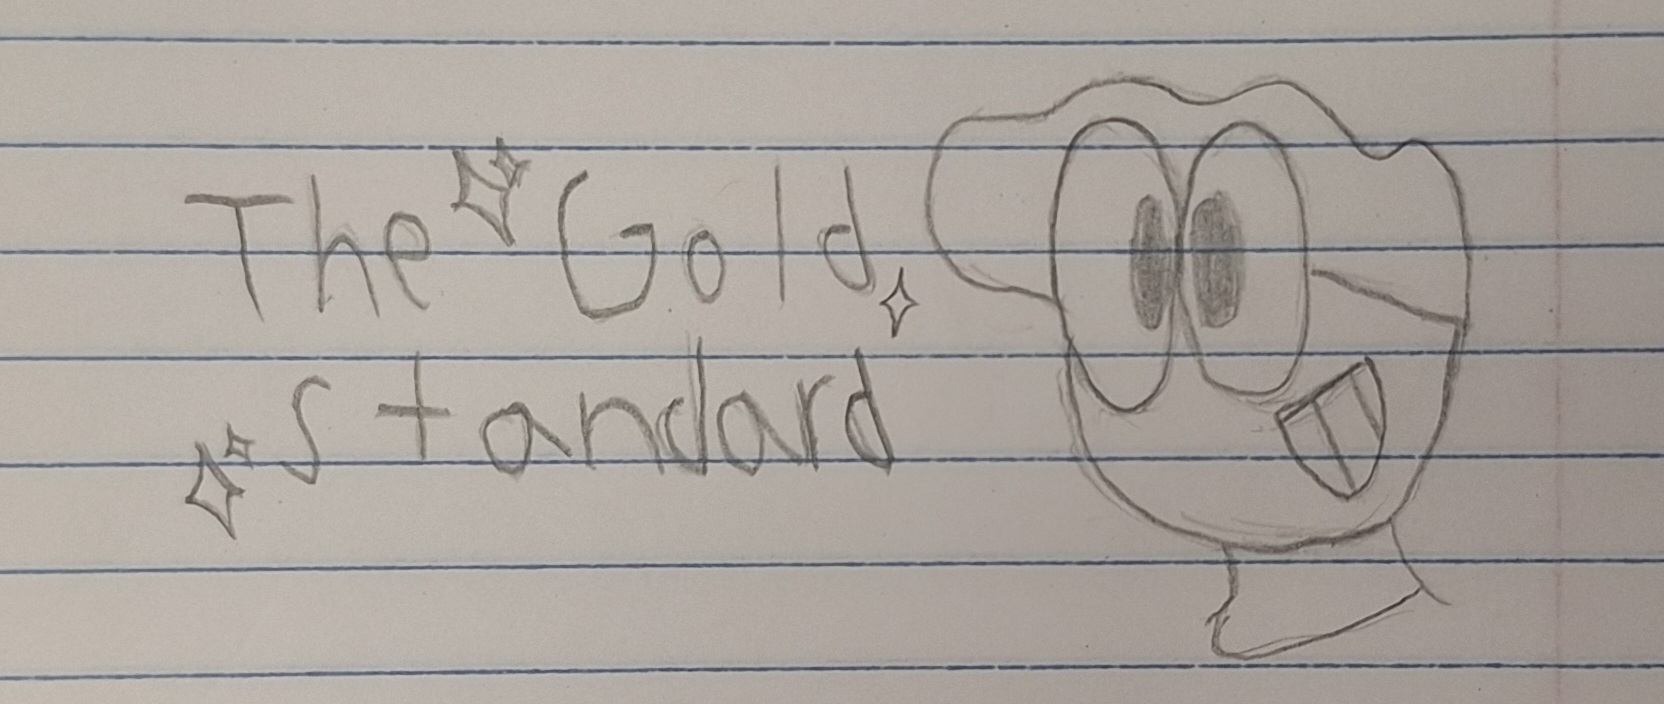 The Gold
Standard